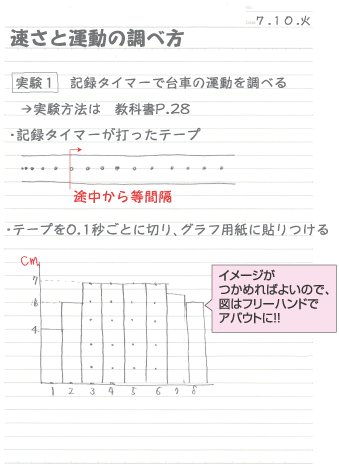 7.10.火
速さと運動の調べ方
実験1 記録タイマーで台車の運動を調べる
→実験方法は 教科書P.28
・記録タイマーが打ったテープ
途中から等間隔
・テープを0.1秒ごとに切り、グラフ用紙に貼りつける
cm
7
6
4
1 2 3 4 5 6 7 8
イメージが
つかめればよいので、
図はフリーハンドで
アバウトに!!